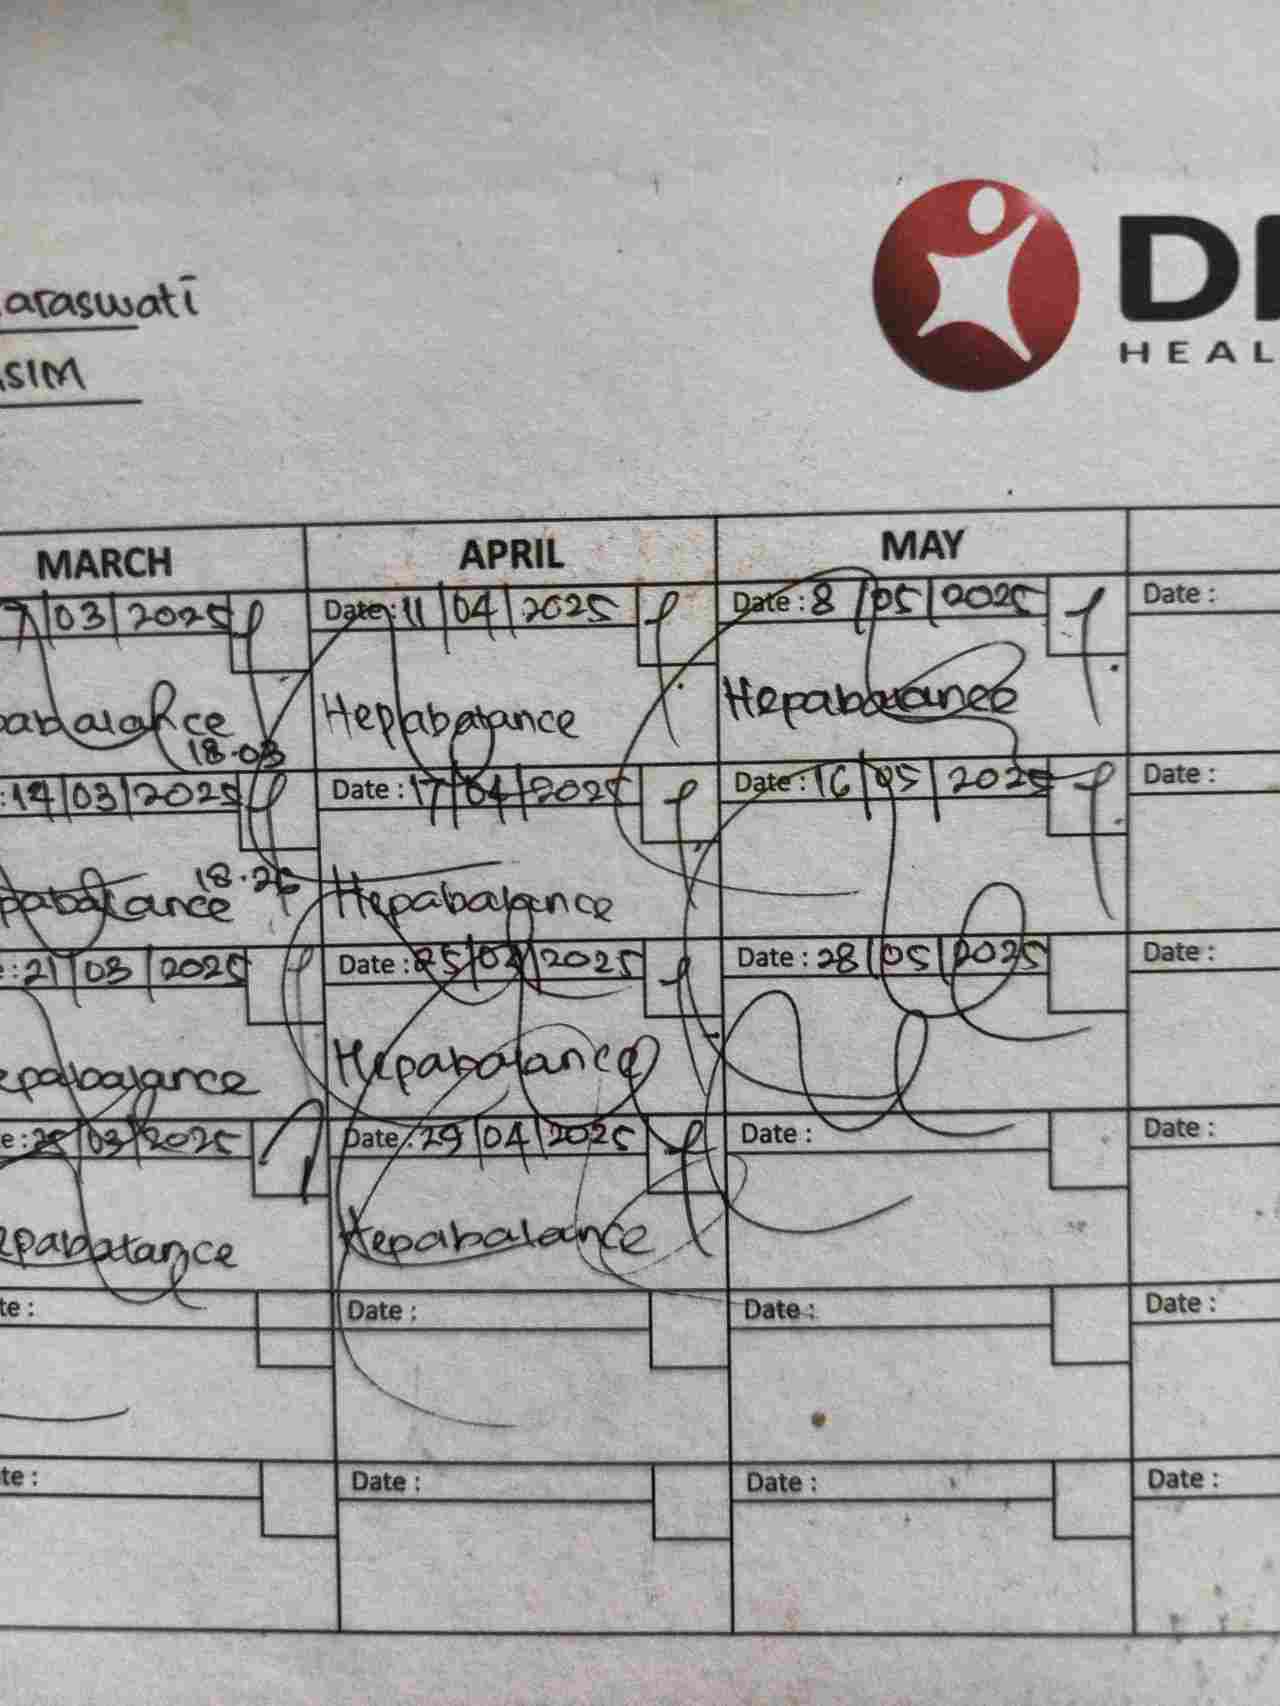 araswati
SIM
DI
HEAL
MARCH APRIL MAY
7/03/2025 Date: 11/04/2025 Date: 8/05/2025 Date:
abalance Hepabalance Hepabalance
18.03
:14/03/2025 Date: 17/04/2025 Date: 16/05/2025 Date:
18.26
pabalance Hepabalance
e: 21/03/2025 Date: 25/04/2025 Date: 28/05/2025 Date:
epabalance Hepabalance
e: /03/2025 Date: 29/04/2025 Date: Date:
epabalance Hepabalance
te: Date: Date: Date:
te: Date: Date: Date: